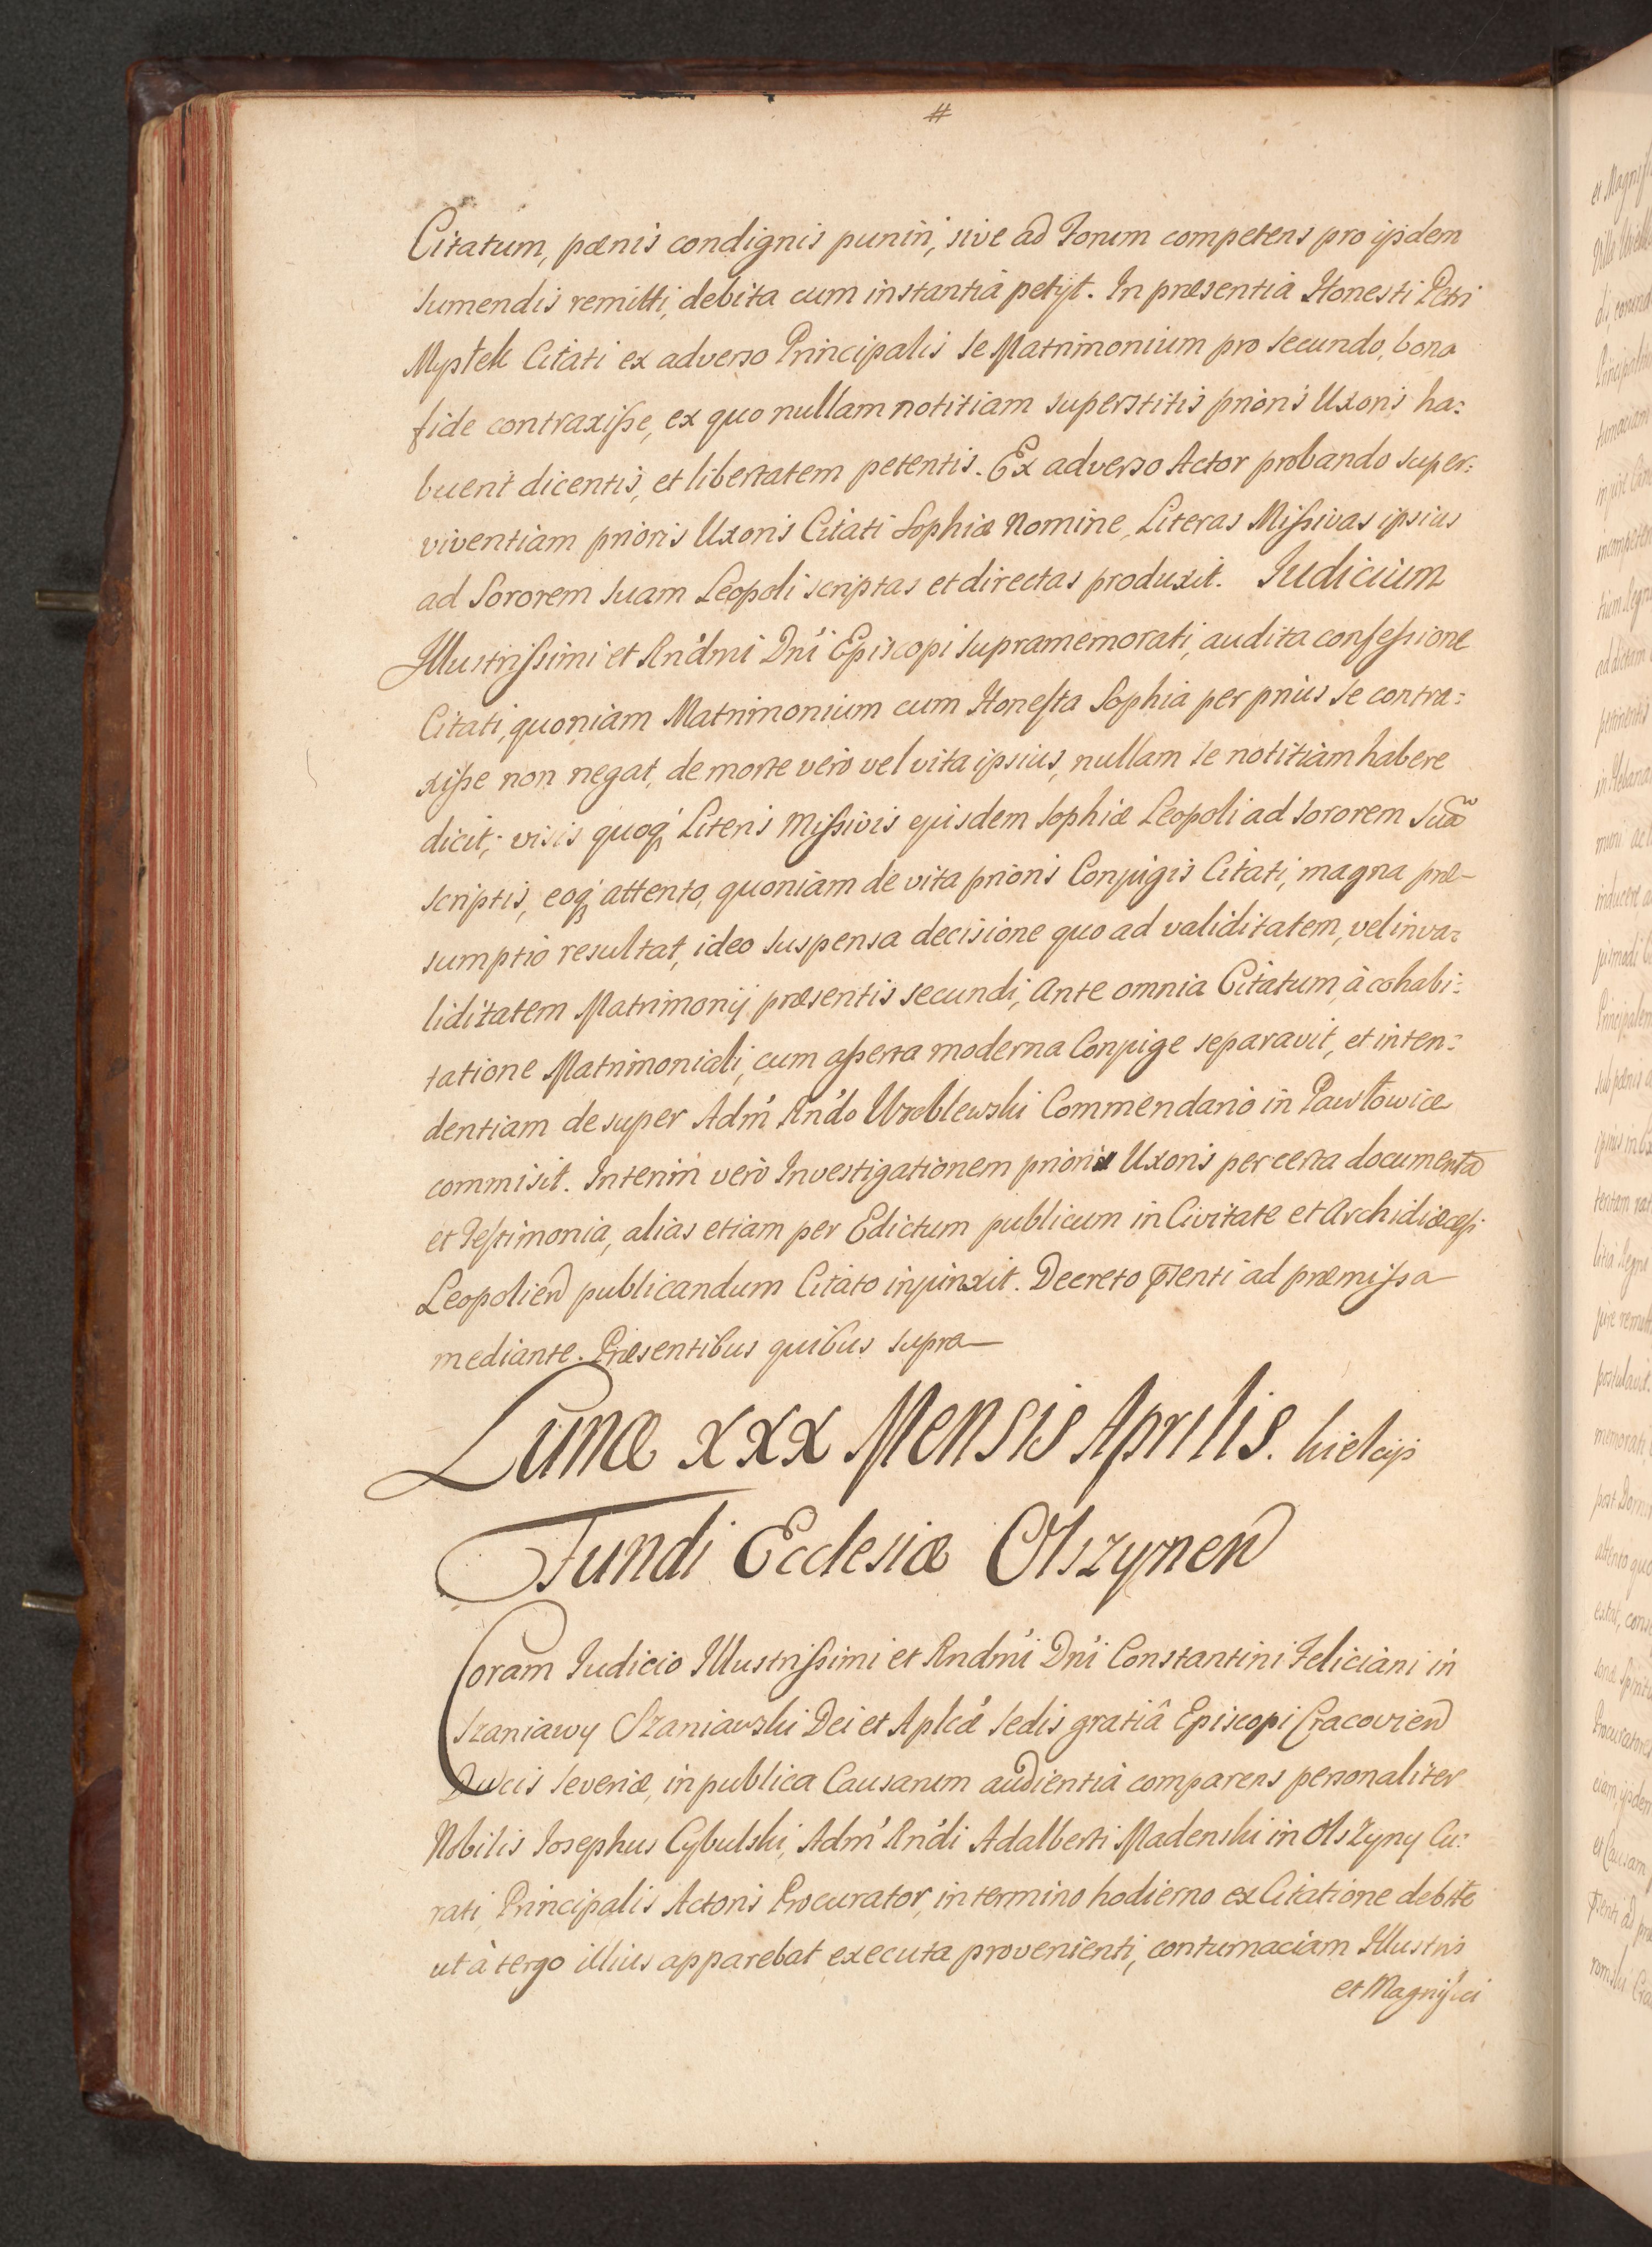 #
Citatum, pænis condignis puniri, sive ad Forum competens pro ijsdem
sumendis remitti, debita cum instantiâ petijt. In præsentiâ Honesti Petri
Mystek Citati ex adverso Principalis se Matrimonium pro secundo, bona
fide contraxiſse, ex quo nullam notitiam superstitis prioris Uxoris ha:
buerit dicentis, et libertatem petentis. Ex adverso Actor probando super:
viventiam prioris Uxoris Citati Sophiæ Nomine, Literas Miſsivas ipsius
ad Sororem suam Leopoli scriptas et directas produxit. Judicium
Illustriſsimi et Rnd̃mi Dn̓i Episcopi supramemorati, audita confeſsione
Citati, quoniam Matrimonium cum Honeſta Sophia per prius se contra:
xiſse non negat, de morte verò vel vita ipsius, nullam se notitiam habere
dicit; visis quoq̓ Literis Miſsivis ejusdem Sophiæ Leopoli ad Sororem suã
scriptis, eoq̓ attento, quoniam de vita prioris Conjugis Citati, magna præ-
sumptio resultat, ideo suspensa decisione quo ad validitatem, vel inva:
liditatem Matrimonij præsentis secundi, Ante omnia Citatum, à cohabi:
tatione Matrimoniali, cum aſserta moderna Conjuge separavit, et inten:
dentiam desuper Adm̓ Rn̓do Wroblewski Commendario in Pawłowice
commisit. Interim verò Investigationem prioris Uxoris per certa documenta
et Teſtimonia, alias etiam per Edictum publicum in Civitate et Archidiæceſi
Leopolien̄ publicandum Citato injunxit. Decreto p̄senti ad præmiſsa
mediante. Præsentibus quibus supra
Lunæ xxx Mensis Aprilis. Kielcijs
Fundi Ecclesiæ Olszynen̄
Coram Judicio Illustriſsimi et Rndm̓i Dn̓i Constantini Feliciani in
Szaniawy Szaniawski Dei et Aplcæ̓ Sedis gratiâ Episcopi Cracovien̄
Ducis Severiæ, in publica Causarum audientiâ comparens personaliter
Nobilis Josephus Cybulski, Adm̓ Rn̓di Adalberti Madenski in Olszyny Cu:
rati, Principalis Actoris Procurator, in termino hodierno ex Citatione debite
ut à tergo illius apparebat executa provenienti, contumaciam Illustris
et Magnifici